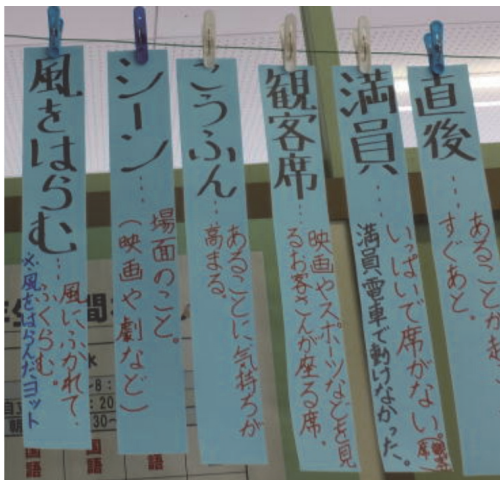 直後…
あることがお
すぐあと。
満員…
いっぱいで席がない。
満員電車で動けなかった。
観客席…
映画やスポーツなどを見
るお客さんが座る席.
こうふん…
あることに気持ちが
高まる。
シーン…
場面のこと。
(映画や劇など)
風をはらむ…
風にふかれて、
ふくらむ。
※風をはらんだヨット
間
水
8:
20
30~
国語
国語
国語